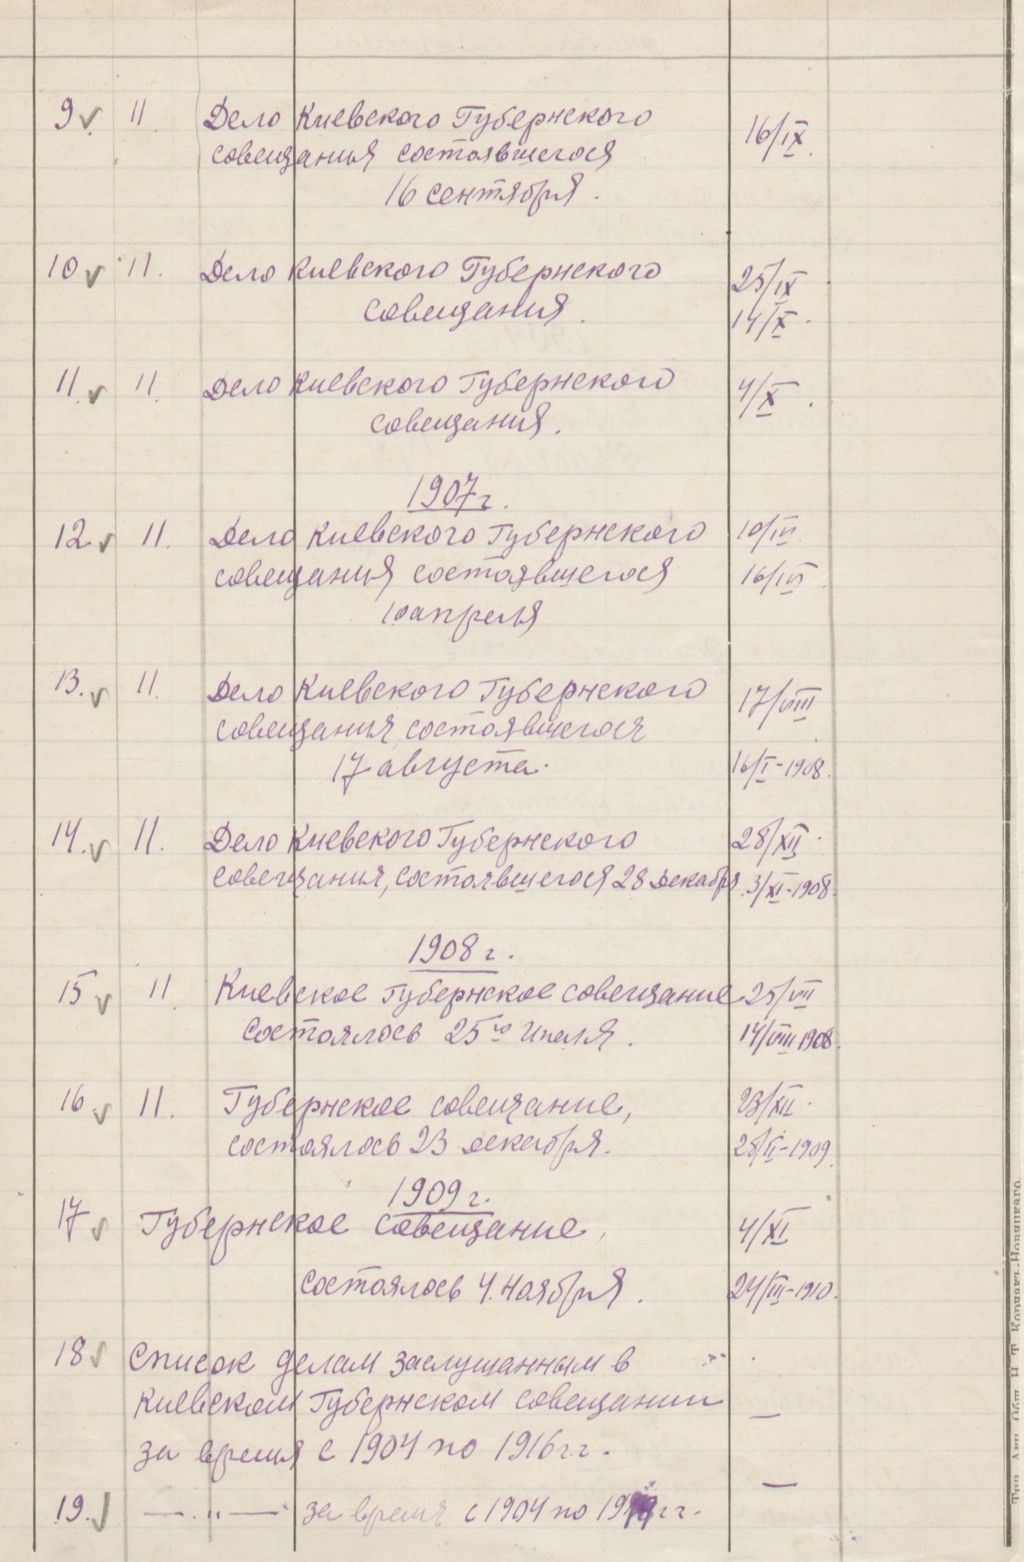 9 11. Дело Киевского Губернского 16/IX.
совещания состоявшегося
16 сентября.
10 11. Дело Киевского Губернского 25/IX
совещания. 14/X.
11. 11. Дело Киевского Губернского 4/X.
совещания.
1907 г.
12 11. Дело Киевского Губернского 10/IV.
совещания состоявшегося 16/IV.
10 апреля
13. 11. Дело Киевского Губернского 17/VIII
совещания, состоявшегося
17 августа. 16/I-1908.
14. 11. Дело Киевского Губернского 28/XII.
совещания, состоявшегося 28 декабря 3/XI-1908.
1908 г.
15 11 Киевское Губернское совещание 25/VII
состоялось 25го июля. 14/VIII 1908.
16 11. Губернское совещание, 23/XII.
состоялось 23 декабря. 28/II-1909.
1909 г.
17 Губернское совещание, 4/XI
состоялось 4 ноября. 24/III-1910.
18 Список делам заслушанным в
Киевском Губернском совещании —
за время с 1904 по 1916 г.г.
19. — " — за время с 1904 по г.г. —
Тип. Акц. Общ. Н. Т. Корчакъ-Новицкаго.